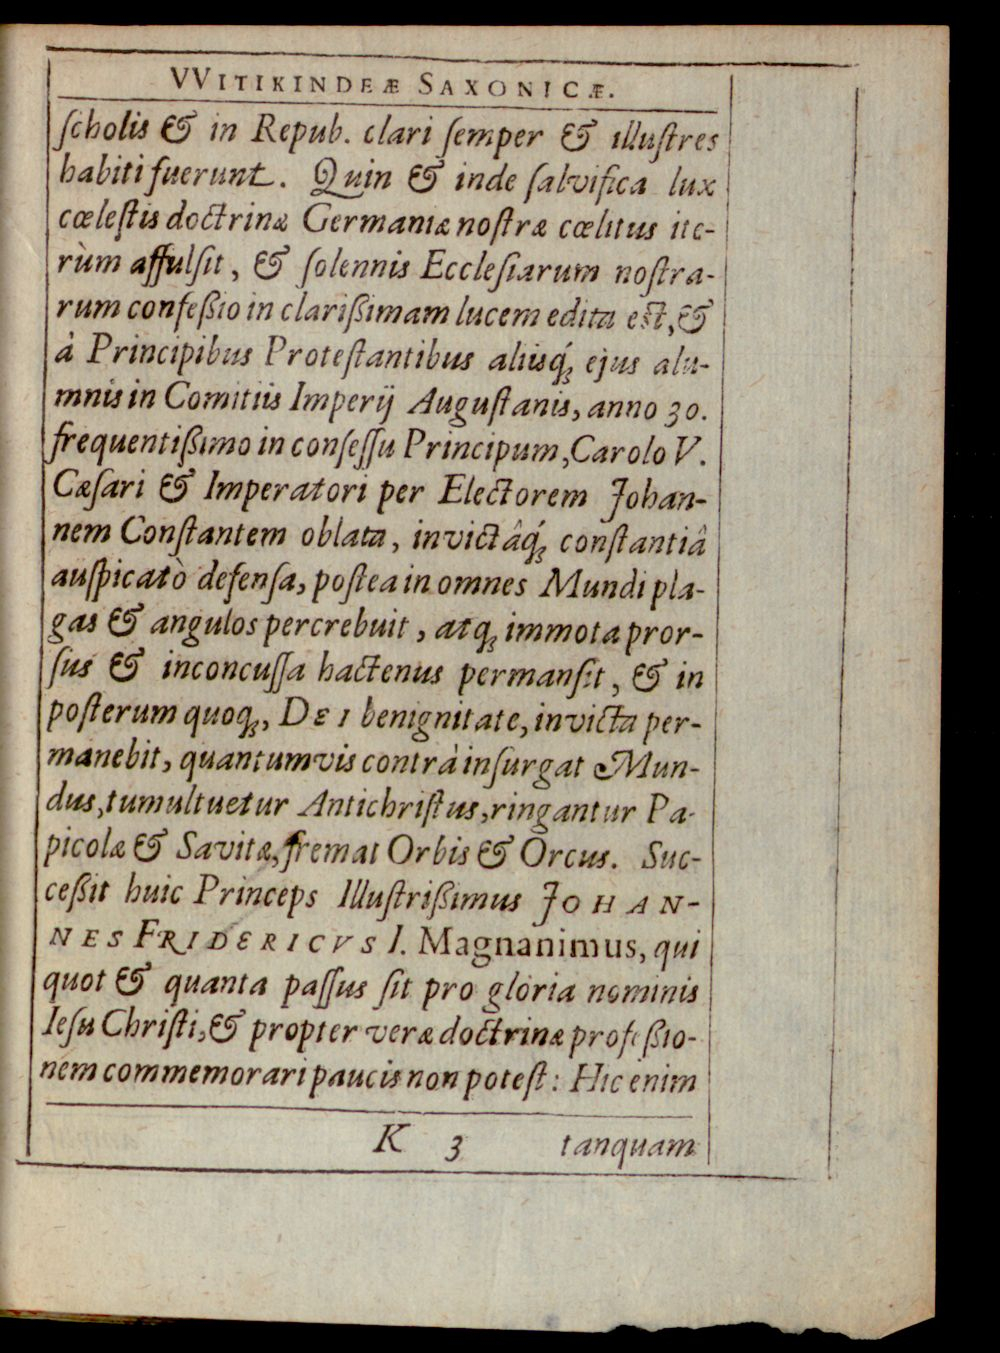 VVITIKINDEÆ SAXONICÆ.
ſcholis & in Repub. clari ſemper & illuſtres
habiti fuerunt. Quin & inde ſalvifica lux
cœleſtis doctrinæ Germaniæ noſtræ cœlitus ite-
rùm affulſit, & ſolennis Eccleſiarum noſtra-
rum confeßio in clarißimam lucem edita est, &
à Principibus Proteſtantibus aliisq́; ejus alu-
mnis in Comitiis Imperij Auguſtanis, anno 30.
frequentißimo in conſeſſu Principum, Carolo V.
Cæſari & Imperatori per Electorem Johan-
nem Conſtantem oblata, invictâq́; conſtantiâ
auſpicatò defenſa, poſtea in omnes Mundi pla-
gas & angulos percrebuit, atq; immota pror-
ſus & inconcuſſa hactenus permanſit, & in
poſterum quoq;, DEI benignitate, invicta per-
manebit, quantumvis contrà inſurgat Mun-
dus, tumultuetur Antichriſtus, ringantur Pa-
picolæ & Savitæ, fremat Orbis & Orcus. Suc-
ceßit huic Princeps Illuſtrißimus JOHAN-
NES FRIDERICVS I. Magnanimus, qui
quot & quanta paſſus ſit pro gloria nominis
Ieſu Chriſti, & propter veræ doctrinæ profeßio-
nem commemorari paucis non poteſt: Hic enim
K 3 tanquam